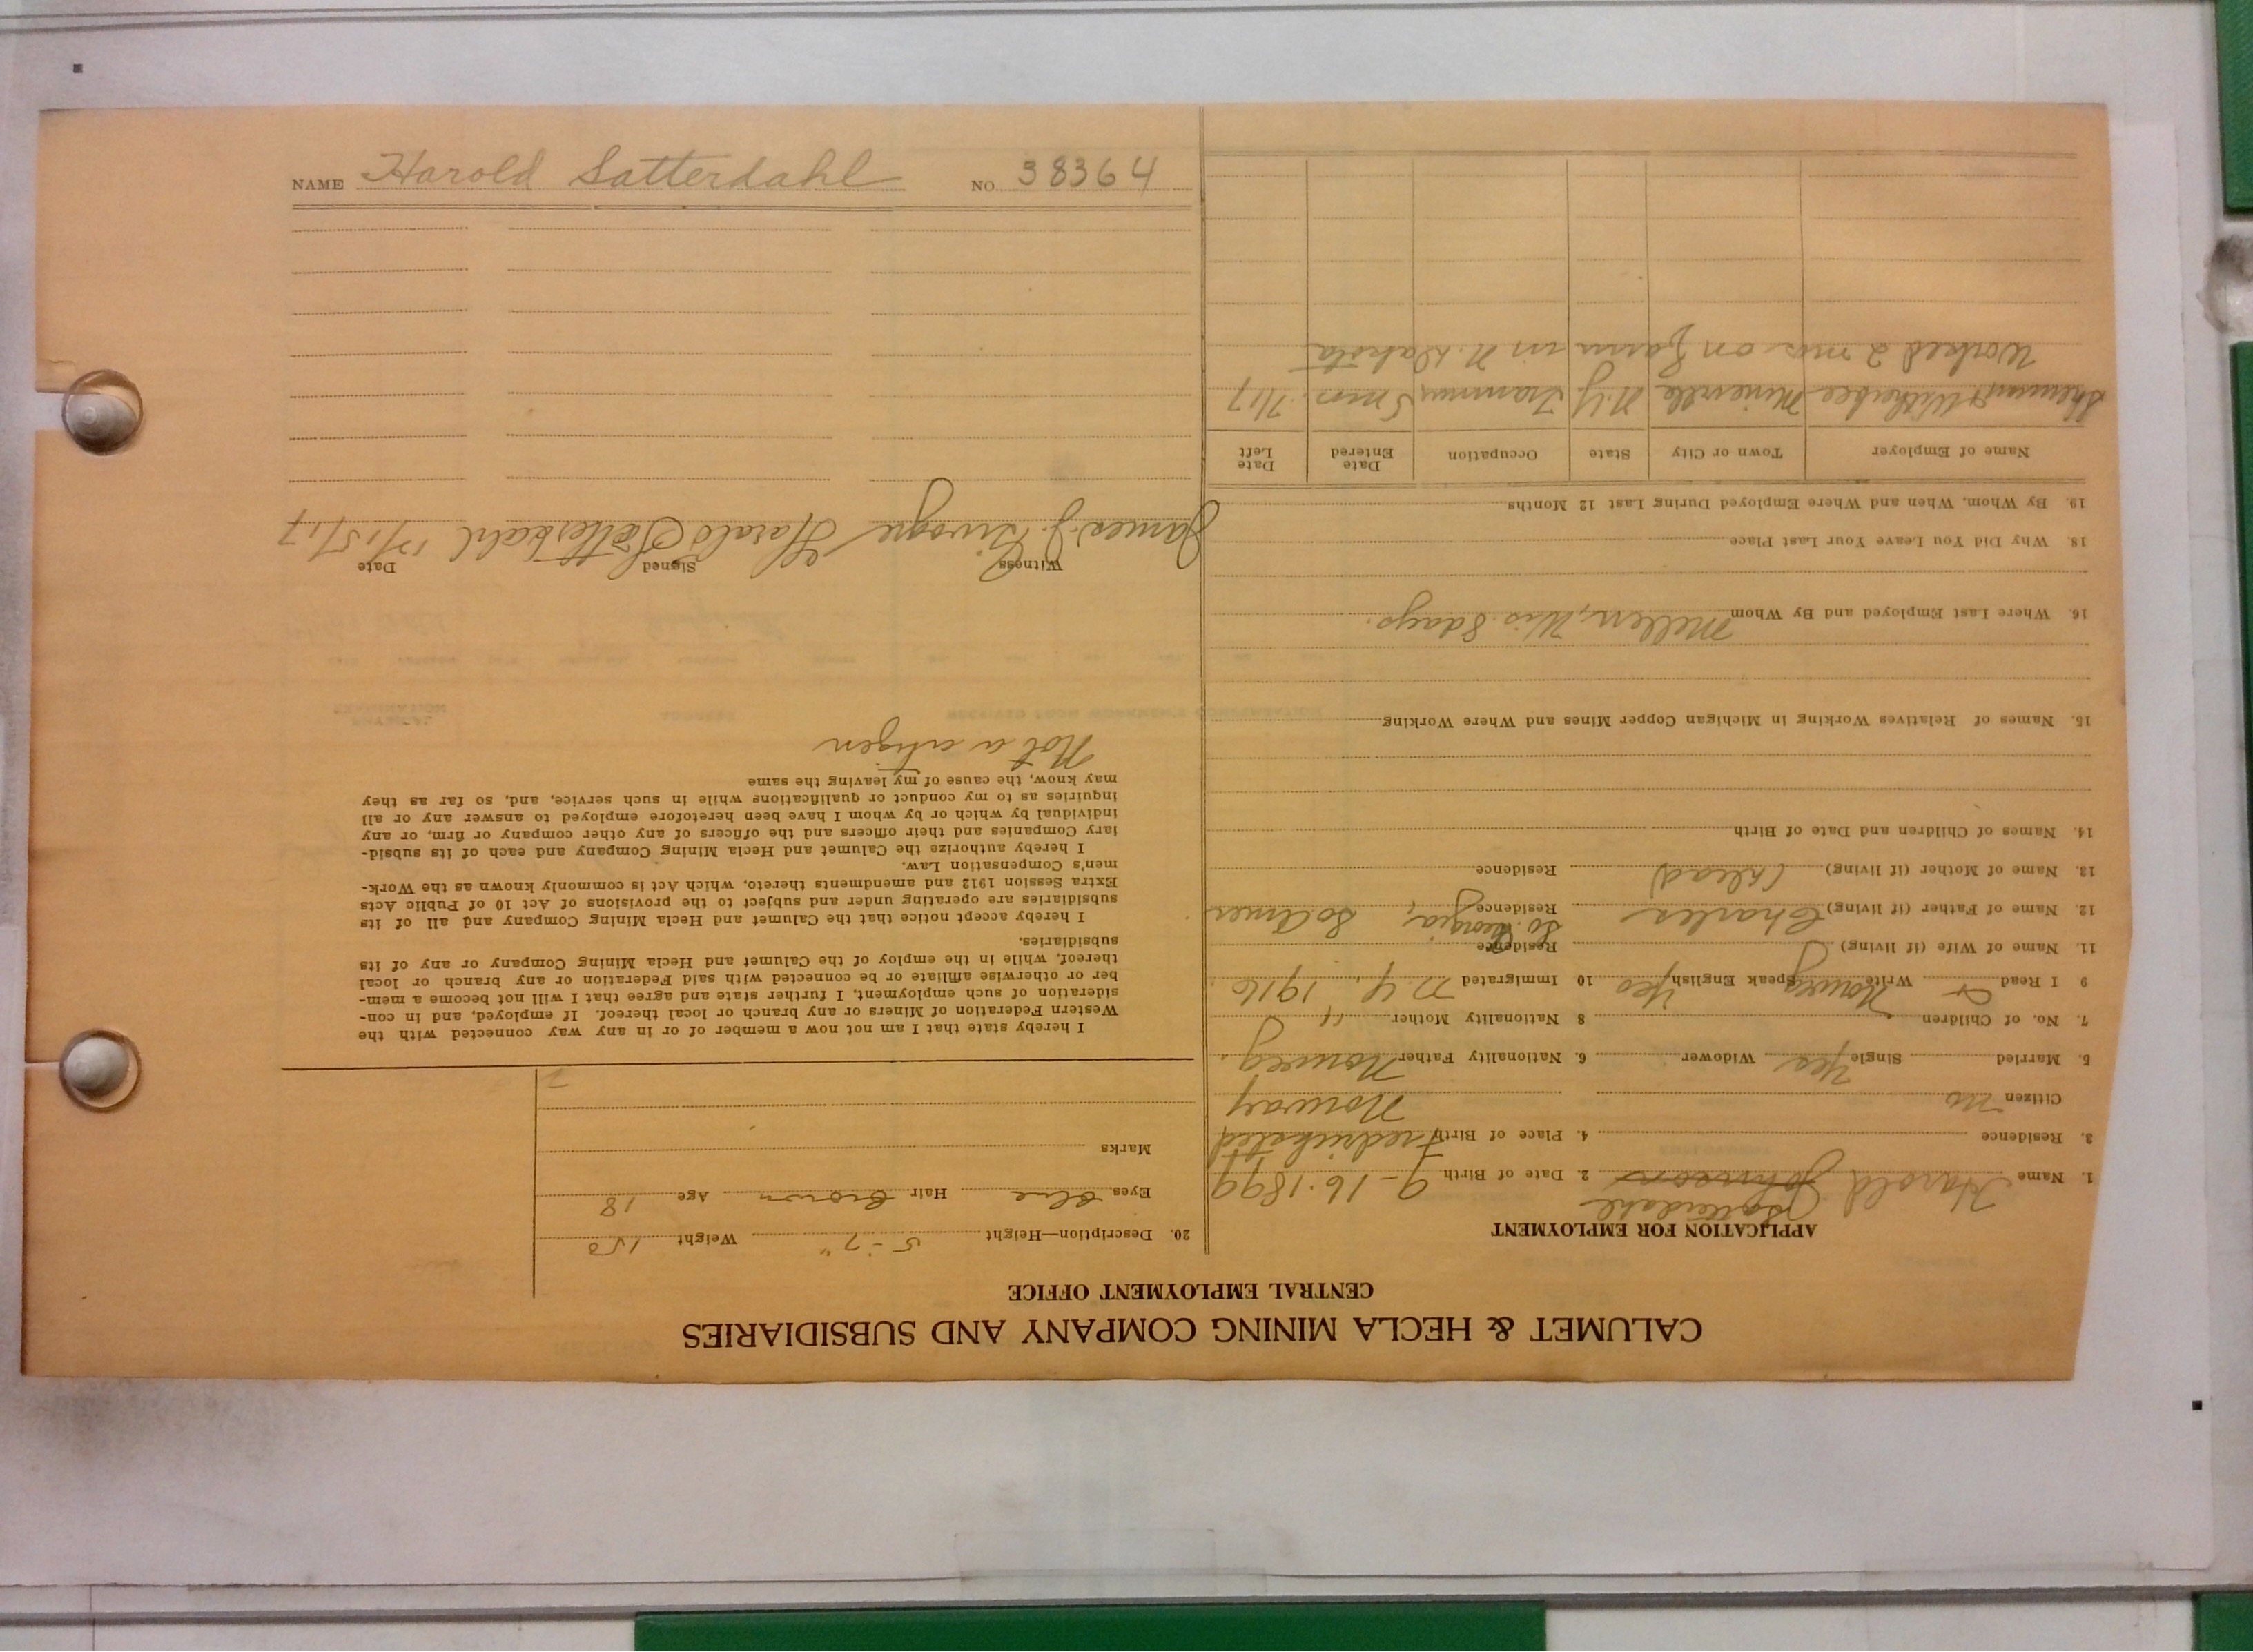 CALUMET & HECLA MINING COMPANY AND SUBSIDIARIES
CENTRAL EMPLOYMENT OFFICE
APPLICATION FOR EMPLOYMENT
Satterdahl
1. Name Harold Johnson 2. Date of Birth 9-16-1899
3. Residence 4. Place of Birth Fredrickstad
Citizen no Norway
5. Married Single Yes Widower 6. Nationality Father Norweg.
7. No. of Children 8 Nationality Mother "
9 I Read Write Norweg Speak English Yes 10 Immigrated N.Y, 1916
11. Name of Wife (if living) Residence
12. Name of Father (if living) Charles Residence So. Georgia, So Amer
13. Name of Mother (if living) (Dead) Residence
14. Names of Children and Date of Birth
15. Names of Relatives Working in Michigan Copper Mines and Where Working
16. Where Last Employed and By Whom Mellen, Wis. 8 days.
18. Why Did You Leave Your Last Place
19. By Whom, When and Where Employed During Last 12 Months
Name of Employer Town or City State Occupation Date Entered Date Left
Sherman & Witherbee Mineville N.Y Trammer 5 mos. 7/17
Worked 2 mos on farm in N. Dakota
20. Description—Height 5-7" Weight 150
Eyes Blue Hair Brown Age 18
Marks
I hereby state that I am not now a member of or in any way connected with the
Western Federation of Miners or any branch or local thereof. If employed, and in con-
sideration of such employment, I further state and agree that I will not become a mem-
ber or otherwise affiliate or be connected with said Federation or any branch or local
thereof, while in the employ of the Calumet and Hecla Mining Company or any of its
subsidiaries.
I hereby accept notice that the Calumet and Hecla Mining Company and all of its
subsidiaries are operating under and subject to the provisions of Act 10 of Public Acts
Extra Session 1912 and amendments thereto, which Act is commonly known as the Work-
men's Compensation Law.
I hereby authorize the Calumet and Hecla Mining Company and each of its subsid-
iary Companies and their officers and the officers of any other company or firm, or any
individual by which or by whom I have been heretofore employed to answer any or all
inquiries as to my conduct or qualifications while in such service, and, so far as they
may know, the cause of my leaving the same
Not a citizen
Witness Signed Date
James J. Harald Sætterdahl 12/15/17
NAME Harold Satterdahl NO. 38364